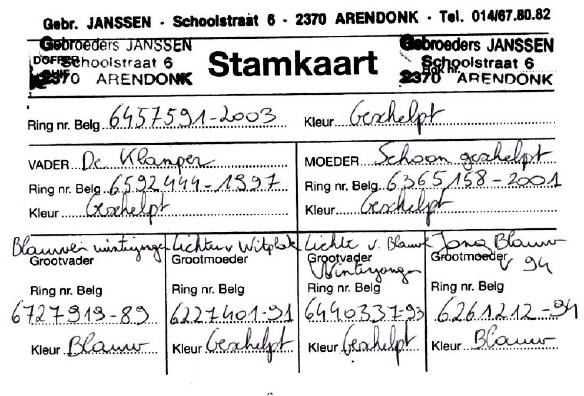 Gebr. JANSSEN - Schoolstraat 6 - 2370 ARENDONK - Tel. 014/67.80.82
Gebroeders JANSSEN
Schoolstraat 6
2370 ARENDONK
Stamkaart
Gebroeders JANSSEN
Schoolstraat 6
2370 ARENDONK
Ring nr. Belg 6457591-2003 Kleur Geschelpt
VADER De Klamper
Ring nr. Belg 6592444-1997
Kleur Geschelpt
MOEDER Schoon geschelpt
Ring nr. Belg 6365158-2001
Kleur Geschelpt
Blauwen winterjongen
Grootvader
Ring nr. Belg
6727919-89
Kleur Blauw
Lichten v Witplek
Grootmoeder
Ring nr. Belg
6227401-91
Kleur Geschelpt
Lichte v. Blauwe
Grootvader
Winterjongen
Ring nr. Belg
6440337-93
Kleur Geschelpt
Jong Blauw
Grootmoeder
v 94
Ring nr. Belg
6261212-94
Kleur Blauw